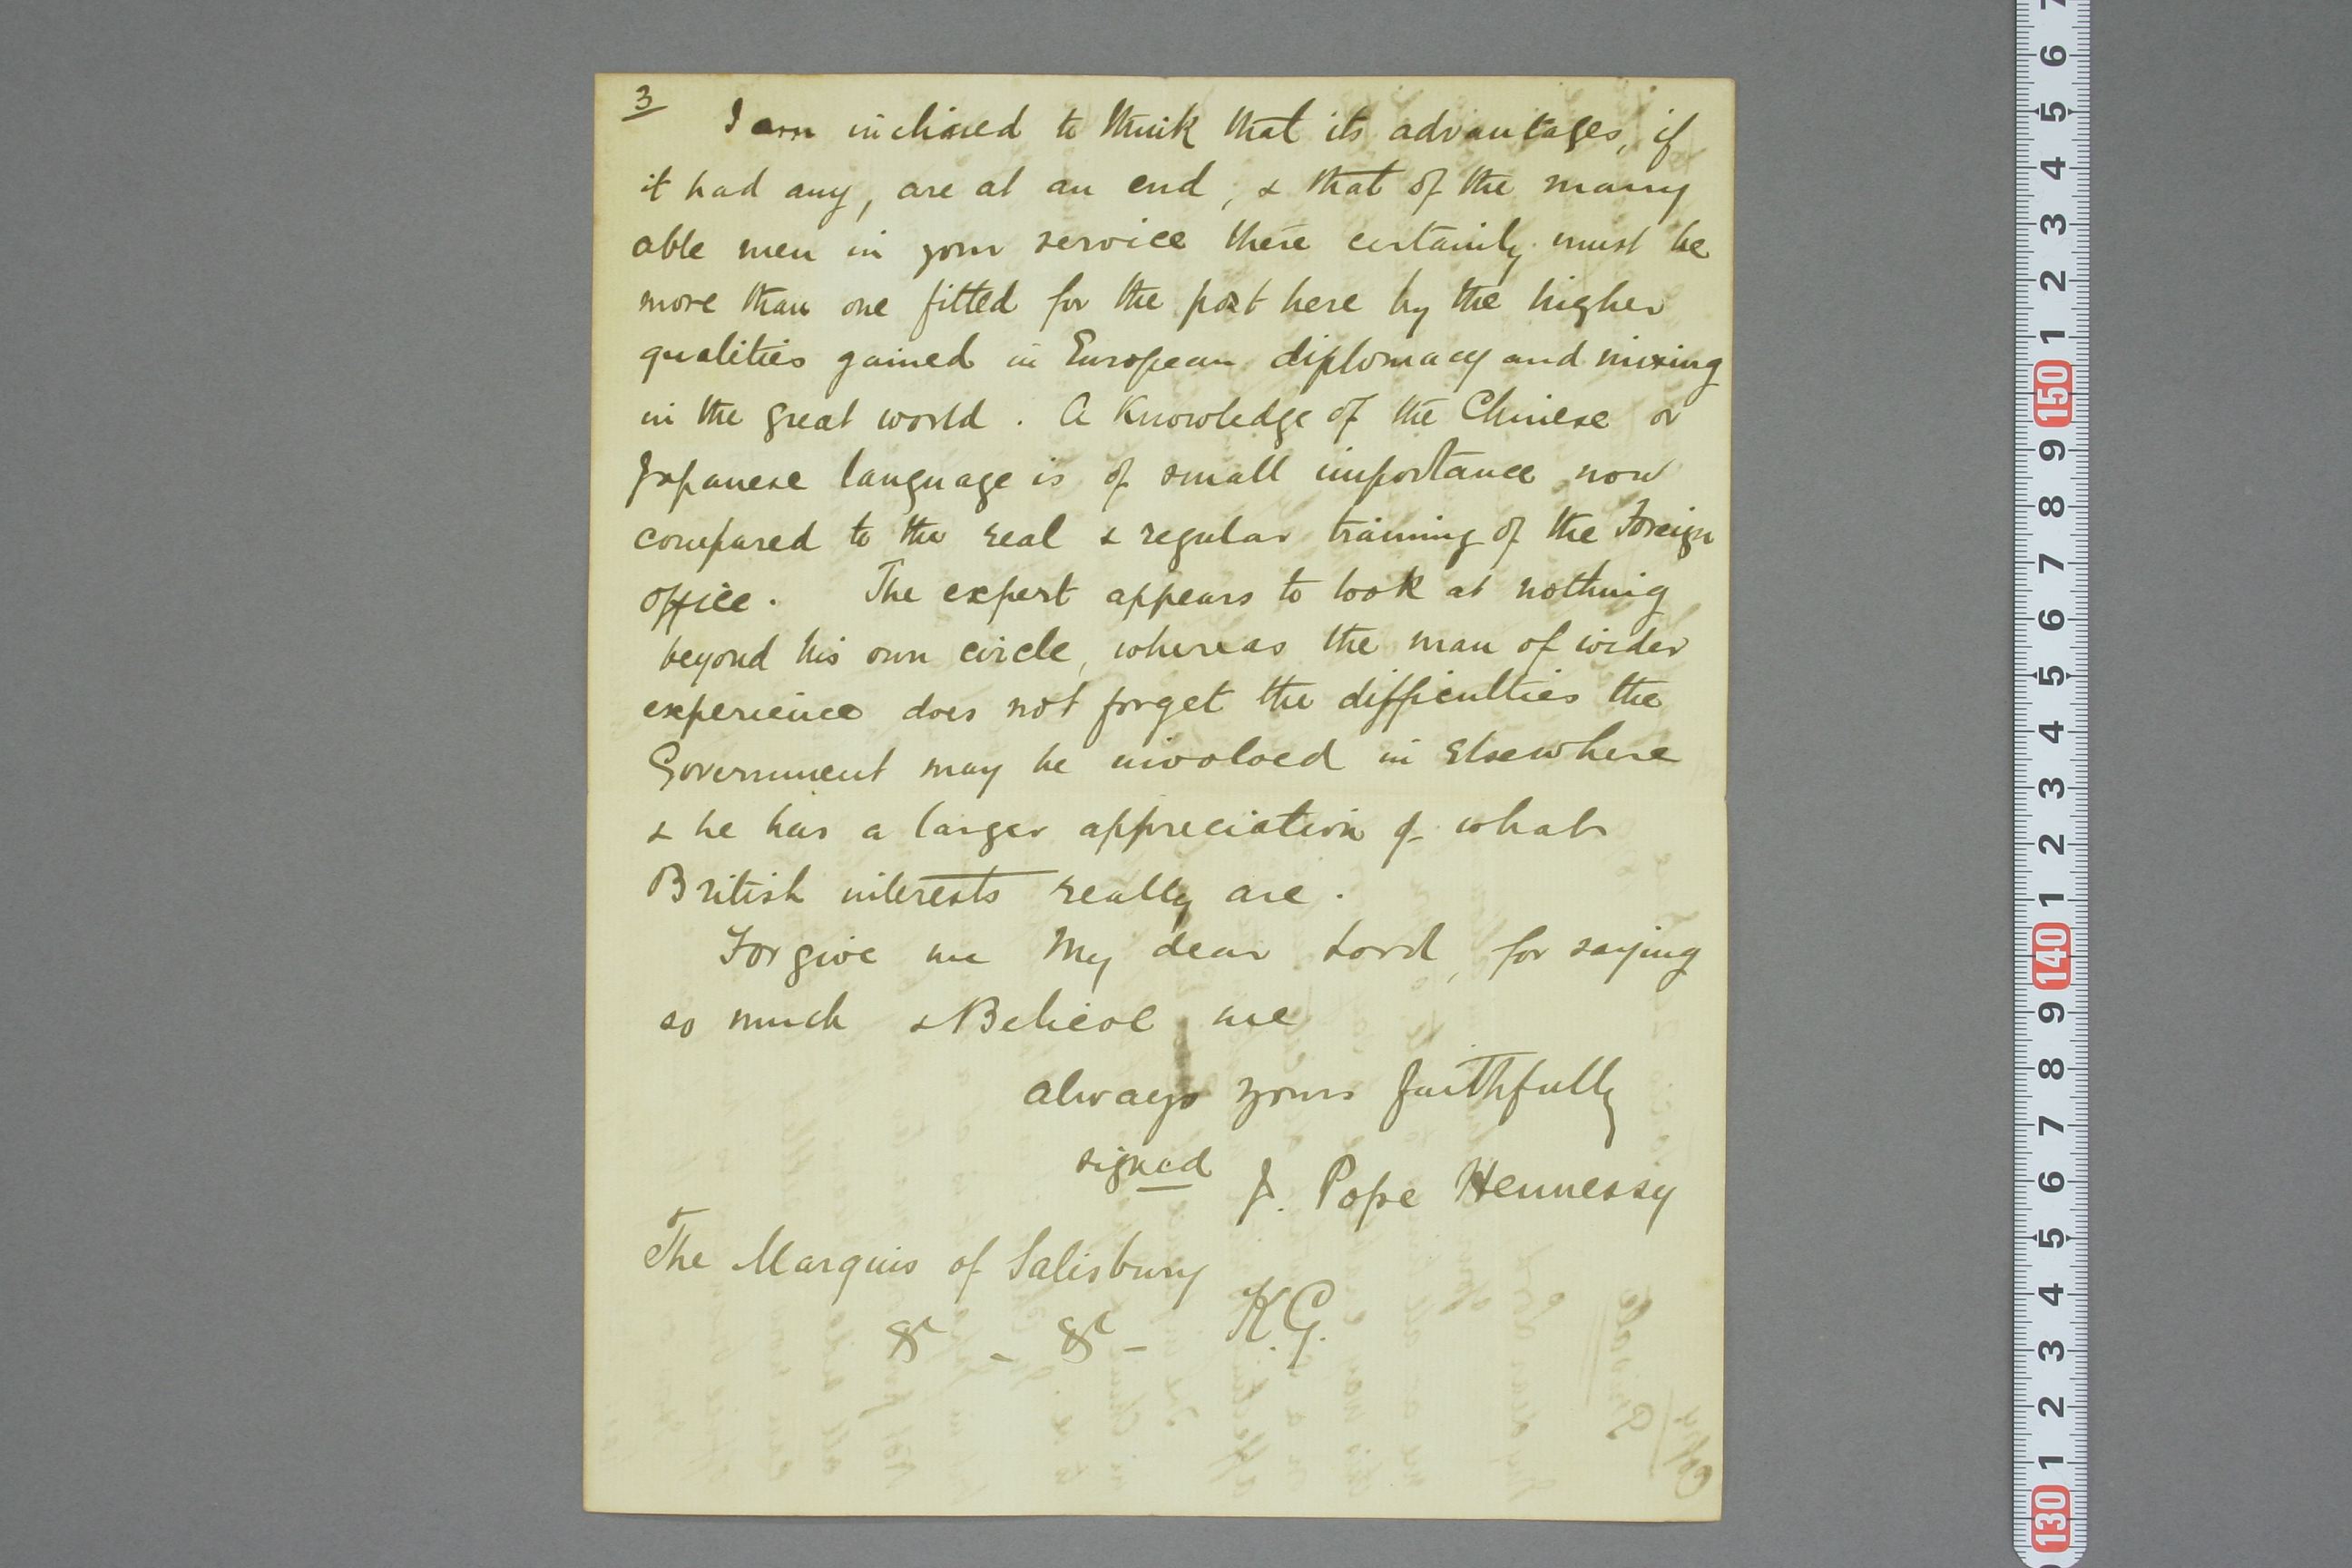 3
I am inclined to think that its advantages, if
it had any, are at an end, & that of the many
able men in your service there certainly must be
more than one fitted for the post here by the higher
qualities gained in European diplomacy and mixing
in the great world. A Knowledge of the Chinese or
Japanese language is of small importance now
compared to the real & regular training of the Foreign
office. The expert appears to look at nothing
beyond his own circle, whereas the man of wider
experience does not forget the difficulties the
Government may be involved in elsewhere
& he has a larger appreciation of what
British interests really are.
Forgive me My dear Lord, for saying
so much & Believe me
always yours faithfully
signed J. Pope Hennessy
The Marquis of Salisbury
&c - &c - K.G.
7
6
5
4
3
2
1
150
9
8
7
6
5
4
3
2
1
140
9
8
7
6
5
4
3
2
1
130